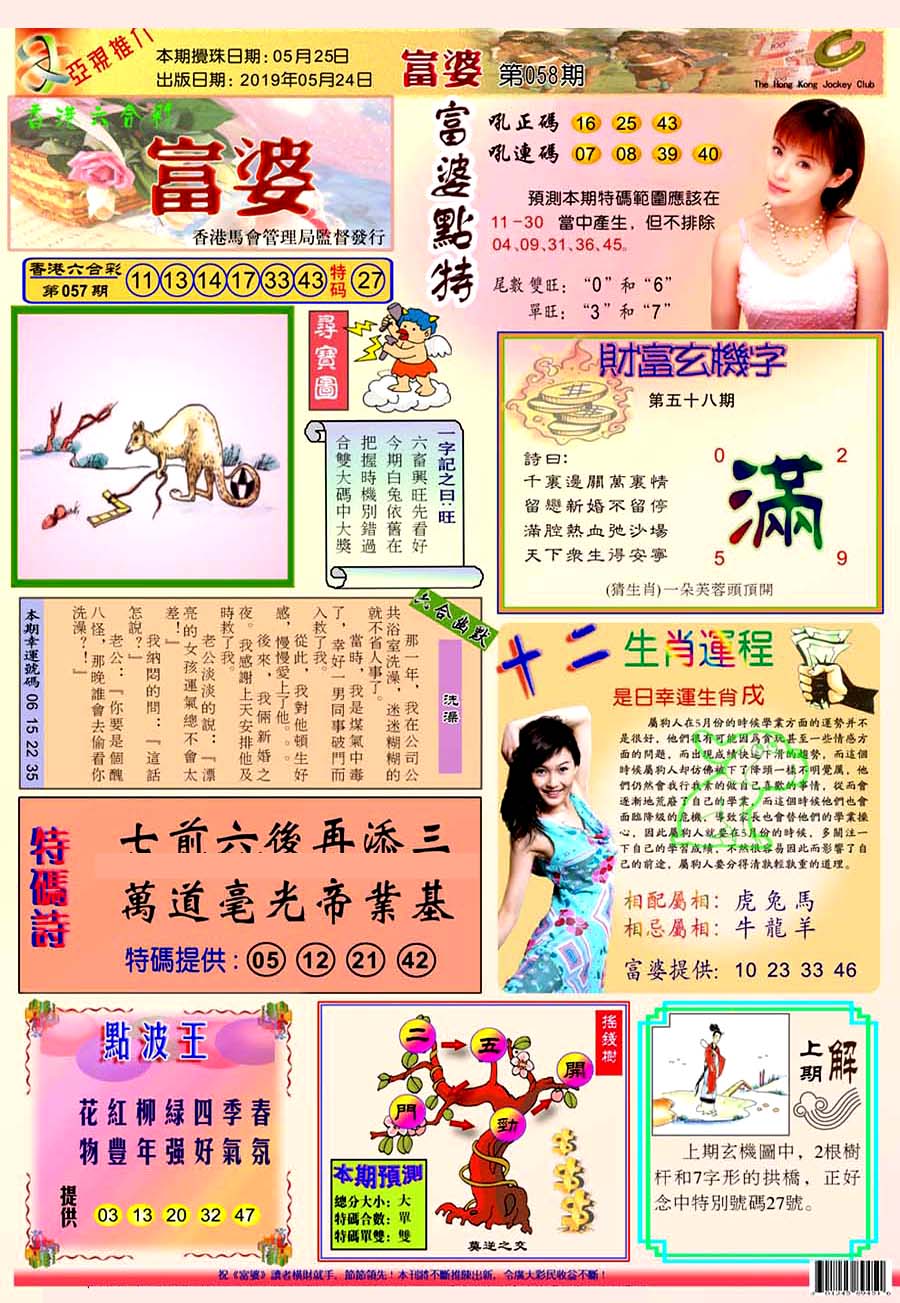 亞視推介
本期攪珠日期：05月25日
出版日期：2019年05月24日
富婆 第058期
The Hong Kong Jockey Club
香港六合彩
富婆
香港馬會管理局監督發行
香港六合彩
第057期
11 13 14 17 33 43 特码 27
富婆點特
吼正碼 16 25 43
吼連碼 07 08 39 40
預測本期特碼範圍應該在
11－30 當中產生，但不排除
04、09、31、36、45。
尾數 雙旺：“0”和“6”
單旺：“3”和“7”
尋寶圖
一字記之曰：旺
六畜興旺先看好
今期白兔依舊在
把握時機別錯過
合雙大碼中大獎
財富玄機字
第五十八期
詩曰：
千裏邊關萬裏情
留戀新婚不留停
滿腔熱血弛沙場
天下衆生得安寧
0 2
滿
5 9
(猜生肖)一朵芙蓉頭頂開
六合幽默
洗澡
那一年，我在公司公
共浴室洗澡，迷迷糊糊的
就不省人事了。
當時，我是煤氣中毒
了，幸好一男同事破門而
入救了我。
從此，我對他頓生好
感，慢慢愛上了他。。。
後來，我倆新婚之
夜。我感謝上天安排他及
時救了我。
老公淡淡的說：『漂
亮的女孩運氣總不會太
差！』
我納悶的問：『這話
怎說？』
老公：『你要是個醜
八怪，那晚誰會去偷看你
洗澡？！』
本期幸運號碼 06 15 22 35
十二生肖運程
是日幸運生肖戌
屬狗人在5月份的時候學業方面的運勢并不
是很好，他們很有可能因爲貪玩甚至一些情感方
面的問題，而出現成績快速下滑的趨勢，而這個
時候屬狗人却仿佛被下了降頭一樣不明覺厲，他
們仍然會我行我素的做自己喜歡的事情，從而會
逐漸地荒廢了自己的學業，而這個時候他們也會
面臨降級的危機，導致家長也會替他們的學業操
心，因此屬狗人就要在5月份的時候，多關注一
下自己的學習成績，不然很容易因此而影響了自
己的前途，屬狗人要分得清孰輕孰重的道理。
相配屬相：虎兔馬
相忌屬相：牛龍羊
富婆提供：10 23 33 46
特碼詩
七前六後再添三
萬道毫光帝業基
特碼提供：05 12 21 42
點波王
花紅柳綠四季春
物豐年强好氣氛
提供 03 13 20 32 47
搖錢樹
二 五 開
門 勁
本期預測
總分大小：大
特碼合數：單
特碼單雙：雙
莫逆之交
上期解
上期玄機圖中，2根樹
杆和7字形的拱橋，正好
念中特別號碼27號。
祝《富婆》讀者橫財就手，節節領先！本刊將不斷推陳出新，令廣大彩民收益不斷！